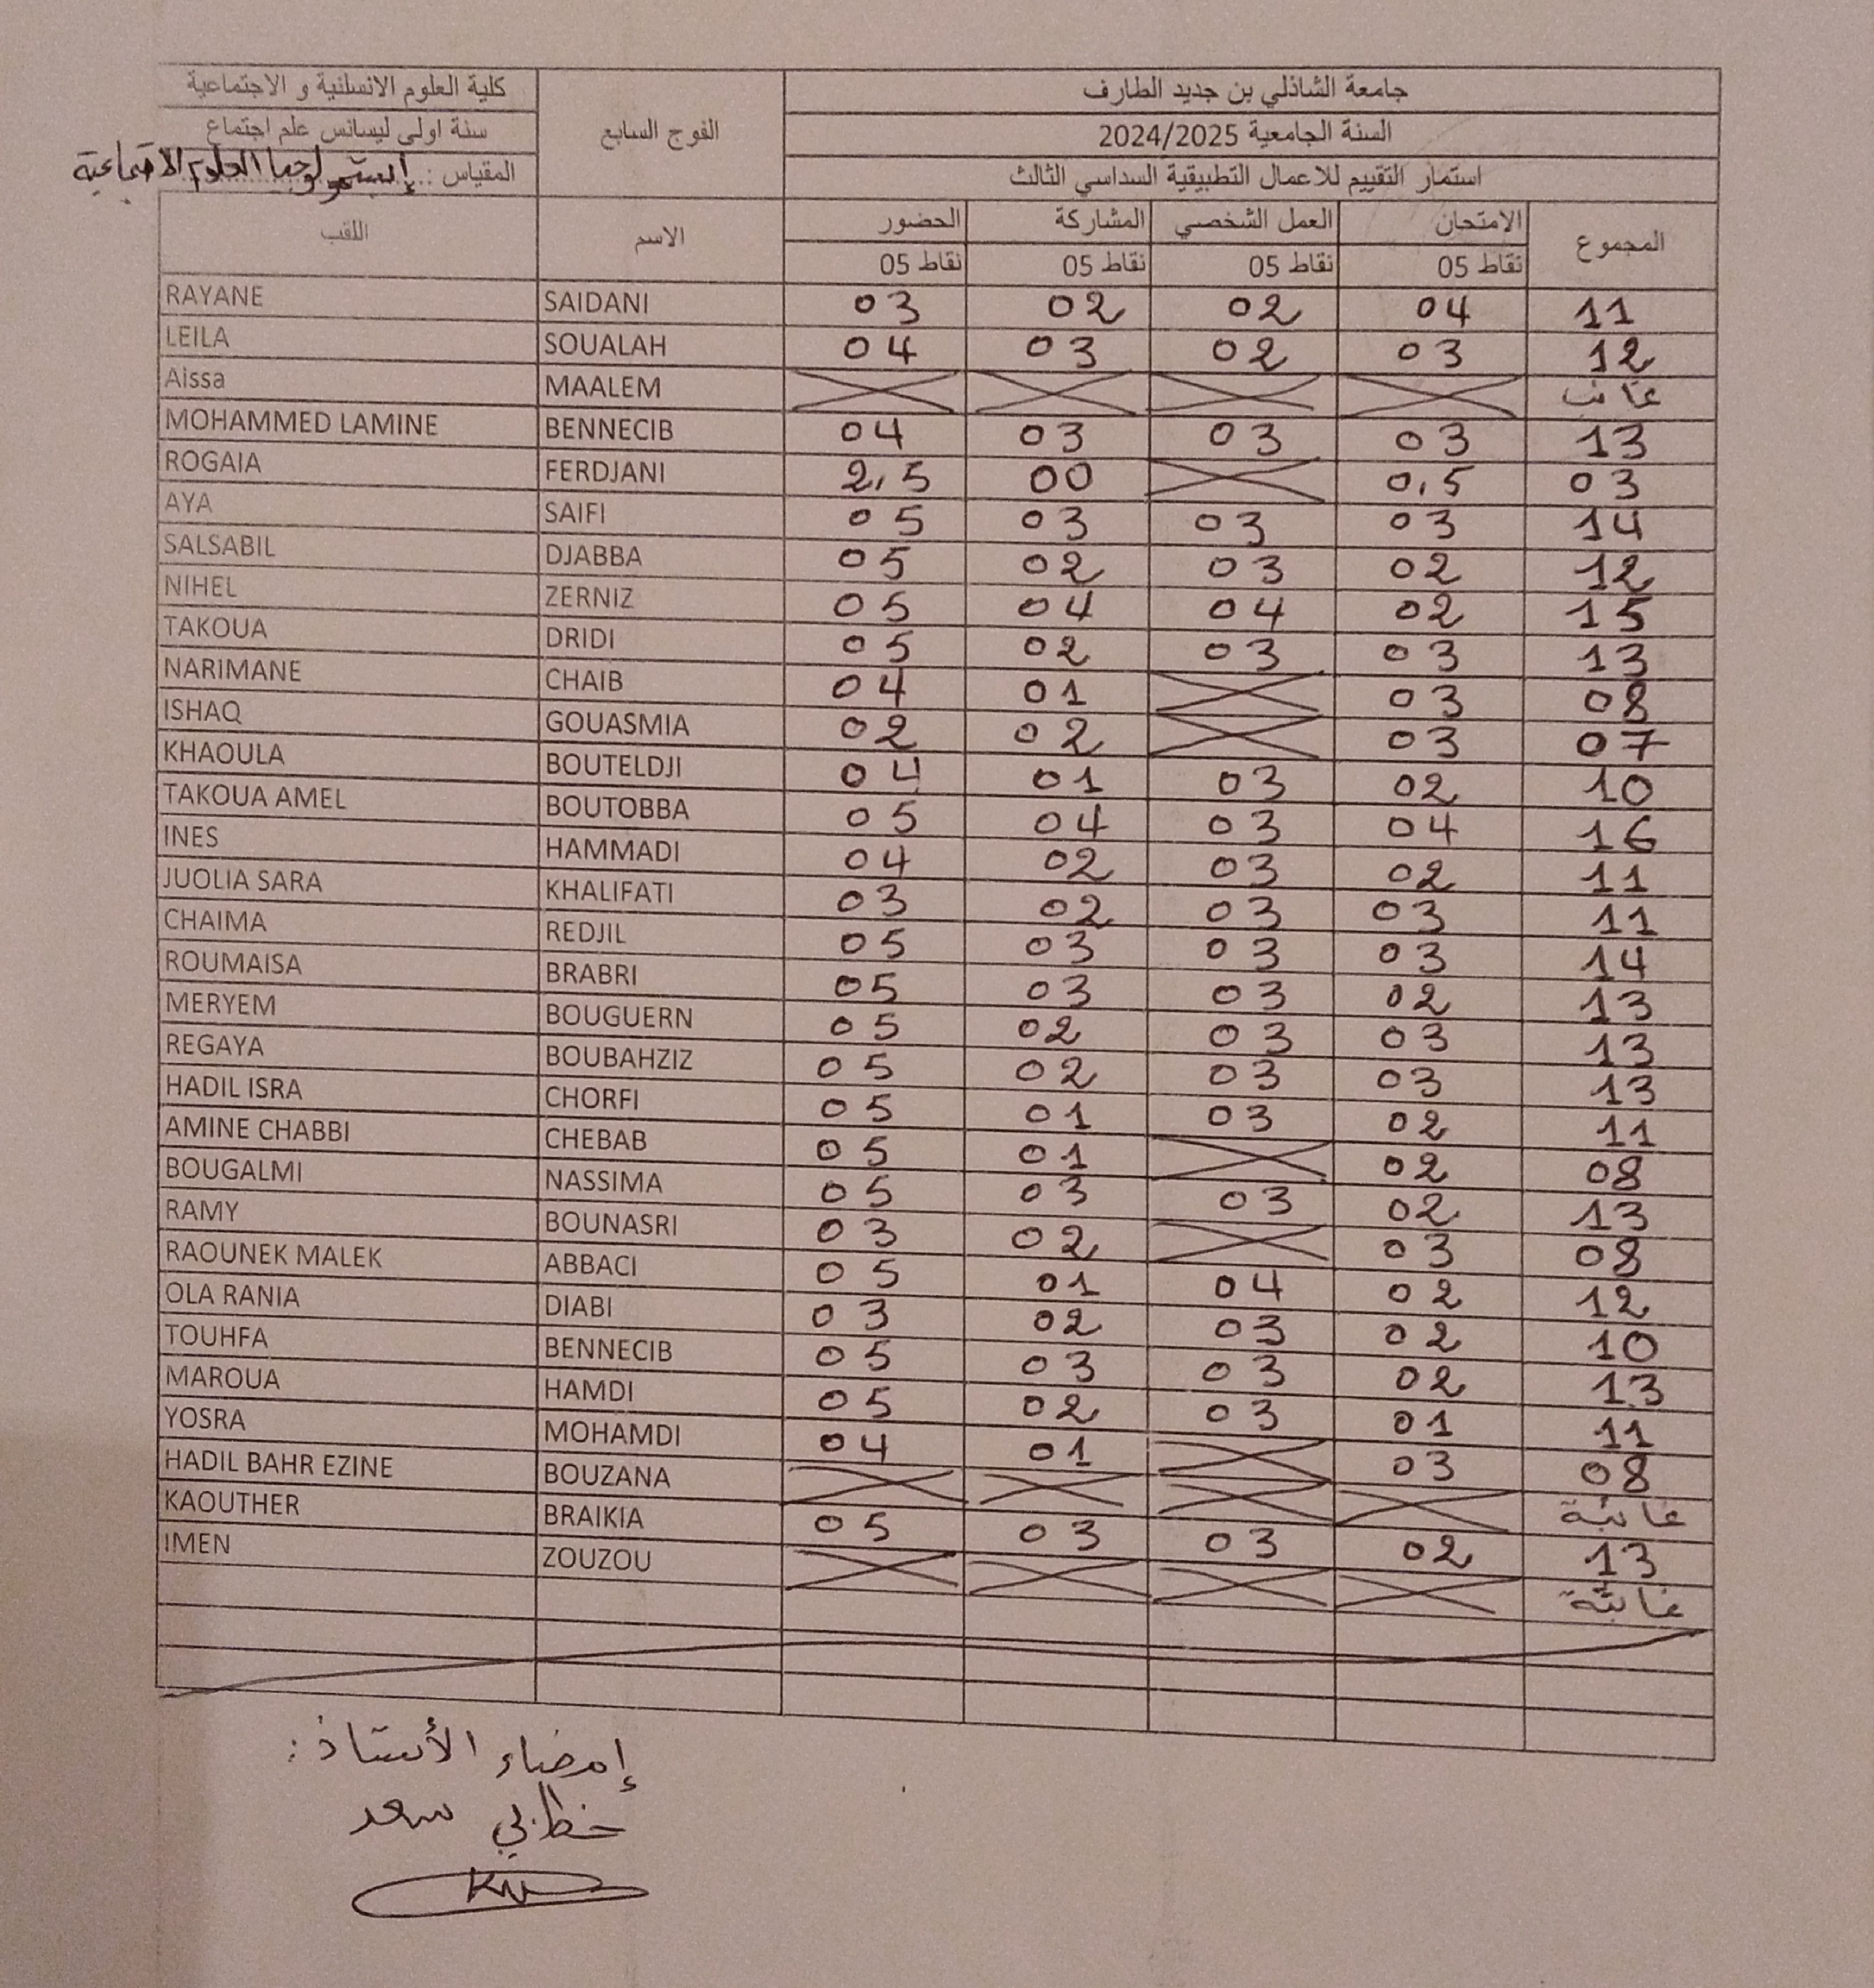 كلية العلوم الانسانية و الاجتماعية الفوج السابع جامعة الشاذلي بن جديد الطارف
سنة اولى ليسانس علم اجتماع السنة الجامعية 2024/2025
المقياس : إبستمولوجيا العلوم الاجتماعية استمار التقييم للاعمال التطبيقية السداسي الثالث
اللقب الاسم الحضور المشاركة العمل الشخصي الامتحان المجموع
05 نقاط 05 نقاط 05 نقاط 05 نقاط
RAYANE SAIDANI 03 02 02 04 11
LEILA SOUALAH 04 03 02 03 12
Aissa MAALEM غائب
MOHAMMED LAMINE BENNECIB 04 03 03 03 13
ROGAIA FERDJANI 2,5 00 0,5 03
AYA SAIFI 05 03 03 03 14
SALSABIL DJABBA 05 02 03 02 12
NIHEL ZERNIZ 05 04 04 02 15
TAKOUA DRIDI 05 02 03 03 13
NARIMANE CHAIB 04 01 03 08
ISHAQ GOUASMIA 02 02 03 07
KHAOULA BOUTELDJI 04 01 03 02 10
TAKOUA AMEL BOUTOBBA 05 04 03 04 16
INES HAMMADI 04 02 03 02 11
JUOLIA SARA KHALIFATI 03 02 03 03 11
CHAIMA REDJIL 05 03 03 03 14
ROUMAISA BRABRI 05 03 03 02 13
MERYEM BOUGUERN 05 02 03 03 13
REGAYA BOUBAHZIZ 05 02 03 03 13
HADIL ISRA CHORFI 05 01 03 02 11
AMINE CHABBI CHEBAB 05 01 02 08
BOUGALMI NASSIMA 05 03 03 02 13
RAMY BOUNASRI 03 02 03 08
RAOUNEK MALEK ABBACI 05 01 04 02 12
OLA RANIA DIABI 03 02 03 02 10
TOUHFA BENNECIB 05 03 03 02 13
MAROUA HAMDI 05 02 03 01 11
YOSRA MOHAMDI 04 01 03 08
HADIL BAHR EZINE BOUZANA غائبة
KAOUTHER BRAIKIA 05 03 03 02 13
IMEN ZOUZOU غائبة
إمضاء الأستاذ :
خطابي سعد